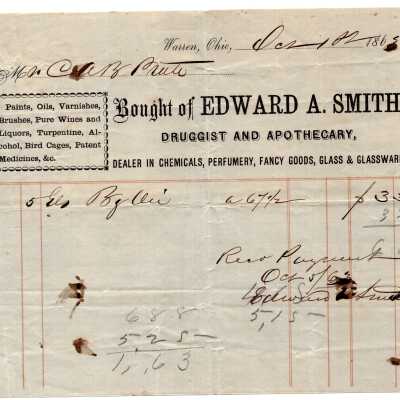 Warren, Ohio, Oct 186
Mr C
Paints, Oils, Varnishes,
Brushes, Pure Wines and
Liquors, Turpentine, Al-
cohol, Bird Cages, Patent
Medicines, &c.
Bought of EDWARD A. SMITH
DRUGGIST AND APOTHECARY,
DEALER IN CHEMICALS, PERFUMERY, FANCY GOODS, GLASS & GLASSWARE
5 a 67½ $ 3
Recd Payment
Oct 5/6
Edward Smith
688
525
1,63
5,15